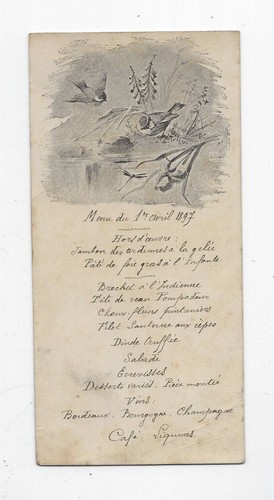 Menu du 1er avril 1897
Hors d'œuvre :
Jambon des ardennes a la gelée
Pâté de foie gras à l'Infante
Brochet à l'Indienne
Tête de veau Pompadour
Choux-fleurs printaniers
Filet Sauterne aux cèpes
Dinde truffée
Salade
Ecrevisses
Desserts variés. Pièce montée
Vins.
Bordeaux. Bourgogne. Champagne
Café. Liqueurs.